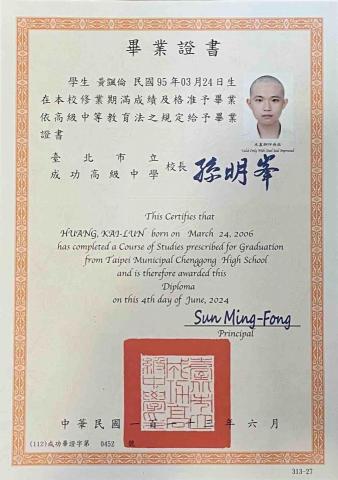 畢業證書
學生 黃凱倫 民國95年03月24日生
在本校修業期滿成績及格准予畢業
依高級中等教育法之規定給予畢業
證書
未蓋鋼印無效
Valid Only With Steel Seal Impressed
臺北市立
成功高級中學 校長 孫明峯
This Certifies that
HUANG, KAI-LUN born on March 24, 2006
has completed a Course of Studies prescribed for Graduation
from Taipei Municipal Chenggong High School
and is therefore awarded this
Diploma
on this 4th day of June, 2024
Sun Ming-Fong
Principal
中華民國一百一十三年六月
(112)成功畢證字第 0452 號
313-27